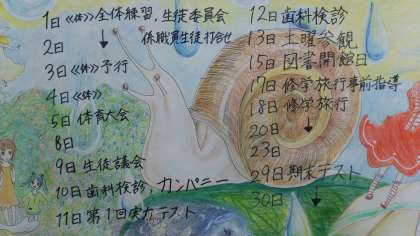 1日 ≪体≫ 全体練習、生徒委員会
係職員生徒打合せ
2日
3日 ≪体≫ 予行
4日 ≪体≫
5日 体育大会
8日
9日 生徒議会
10日 歯科検診、カンパニー
11日 第1回実力テスト
12日 歯科検診
13日 土曜参観
15日 図書開館日
17日 修学旅行事前指導
18日 修学旅行
20日
23日
29日 期末テスト
30日